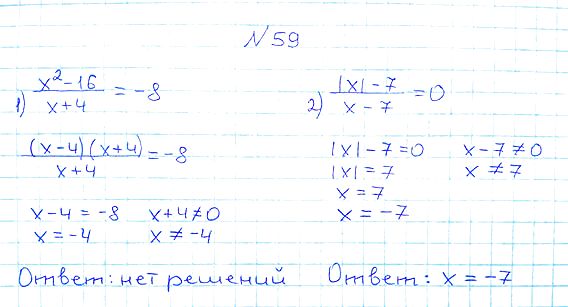 №59
1) (x²-16)/(x+4) = -8
((x-4)(x+4))/(x+4) = -8
x-4 = -8 x+4≠0
x = -4 x ≠ -4
Ответ: нет решений
2) (|x|-7)/(x-7) = 0
|x|-7=0 x-7≠0
|x|=7 x ≠ 7
x = 7
x = -7
Ответ: x = -7